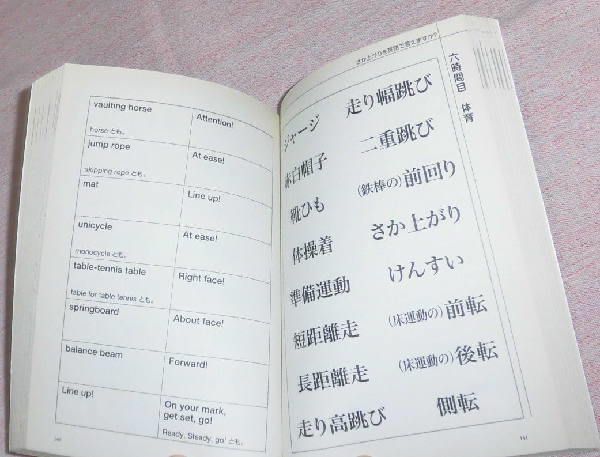 vaulting horse
horse とも。
Attention!
jump rope
skipping rope とも。
At ease!
mat
Line up!
unicycle
monocycle とも。
At ease!
table-tennis table
table for table tennis とも。
Right face!
springboard
About face!
balance beam
Forward!
Line up!
On your mark,
get set, go!
Ready, Steady, go! とも。
さか上がりを英語で言えますか?
六時間目 体育
ジャージ
走り幅跳び
赤白帽子
二重跳び
靴ひも
(鉄棒の)前回り
体操着
さか上がり
準備運動
けんすい
短距離走
(床運動の)前転
長距離走
(床運動の)後転
走り高跳び
側転
141